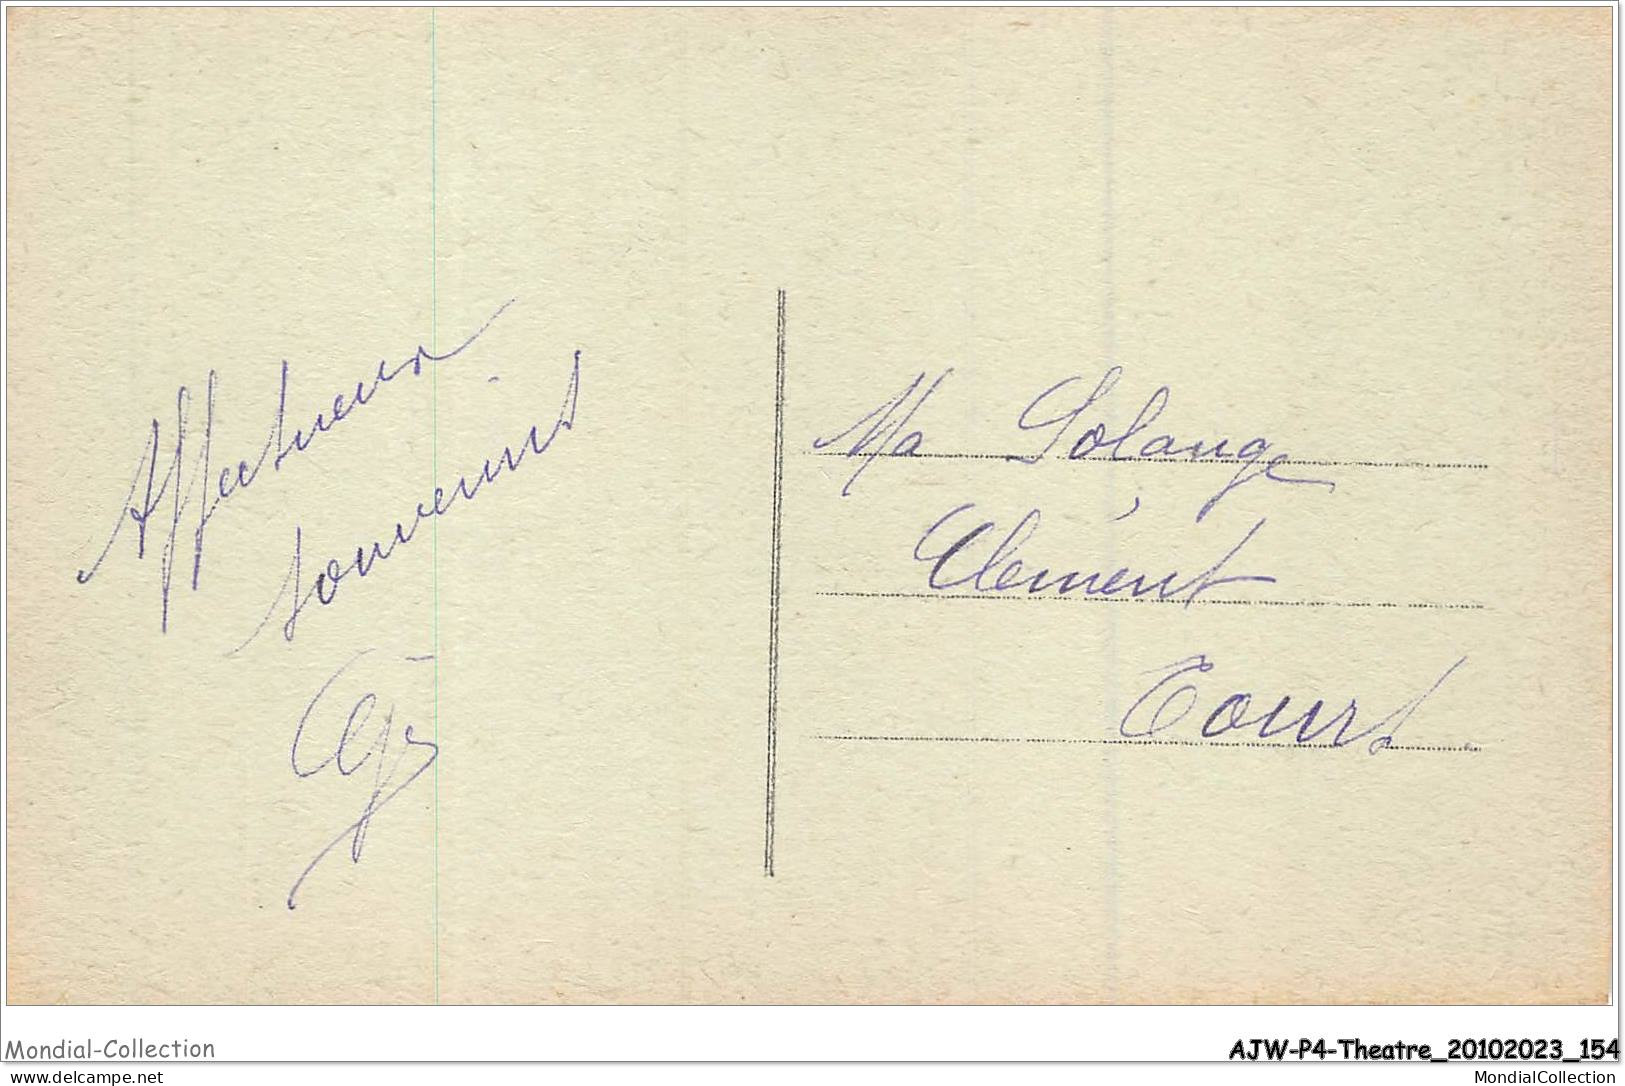 Affectueux
souvenirs
Ma Solange
Clément
Tours
Mondial-Collection
AJW-P4-Theatre_20102023_154
delcampe.net
MondialCollection